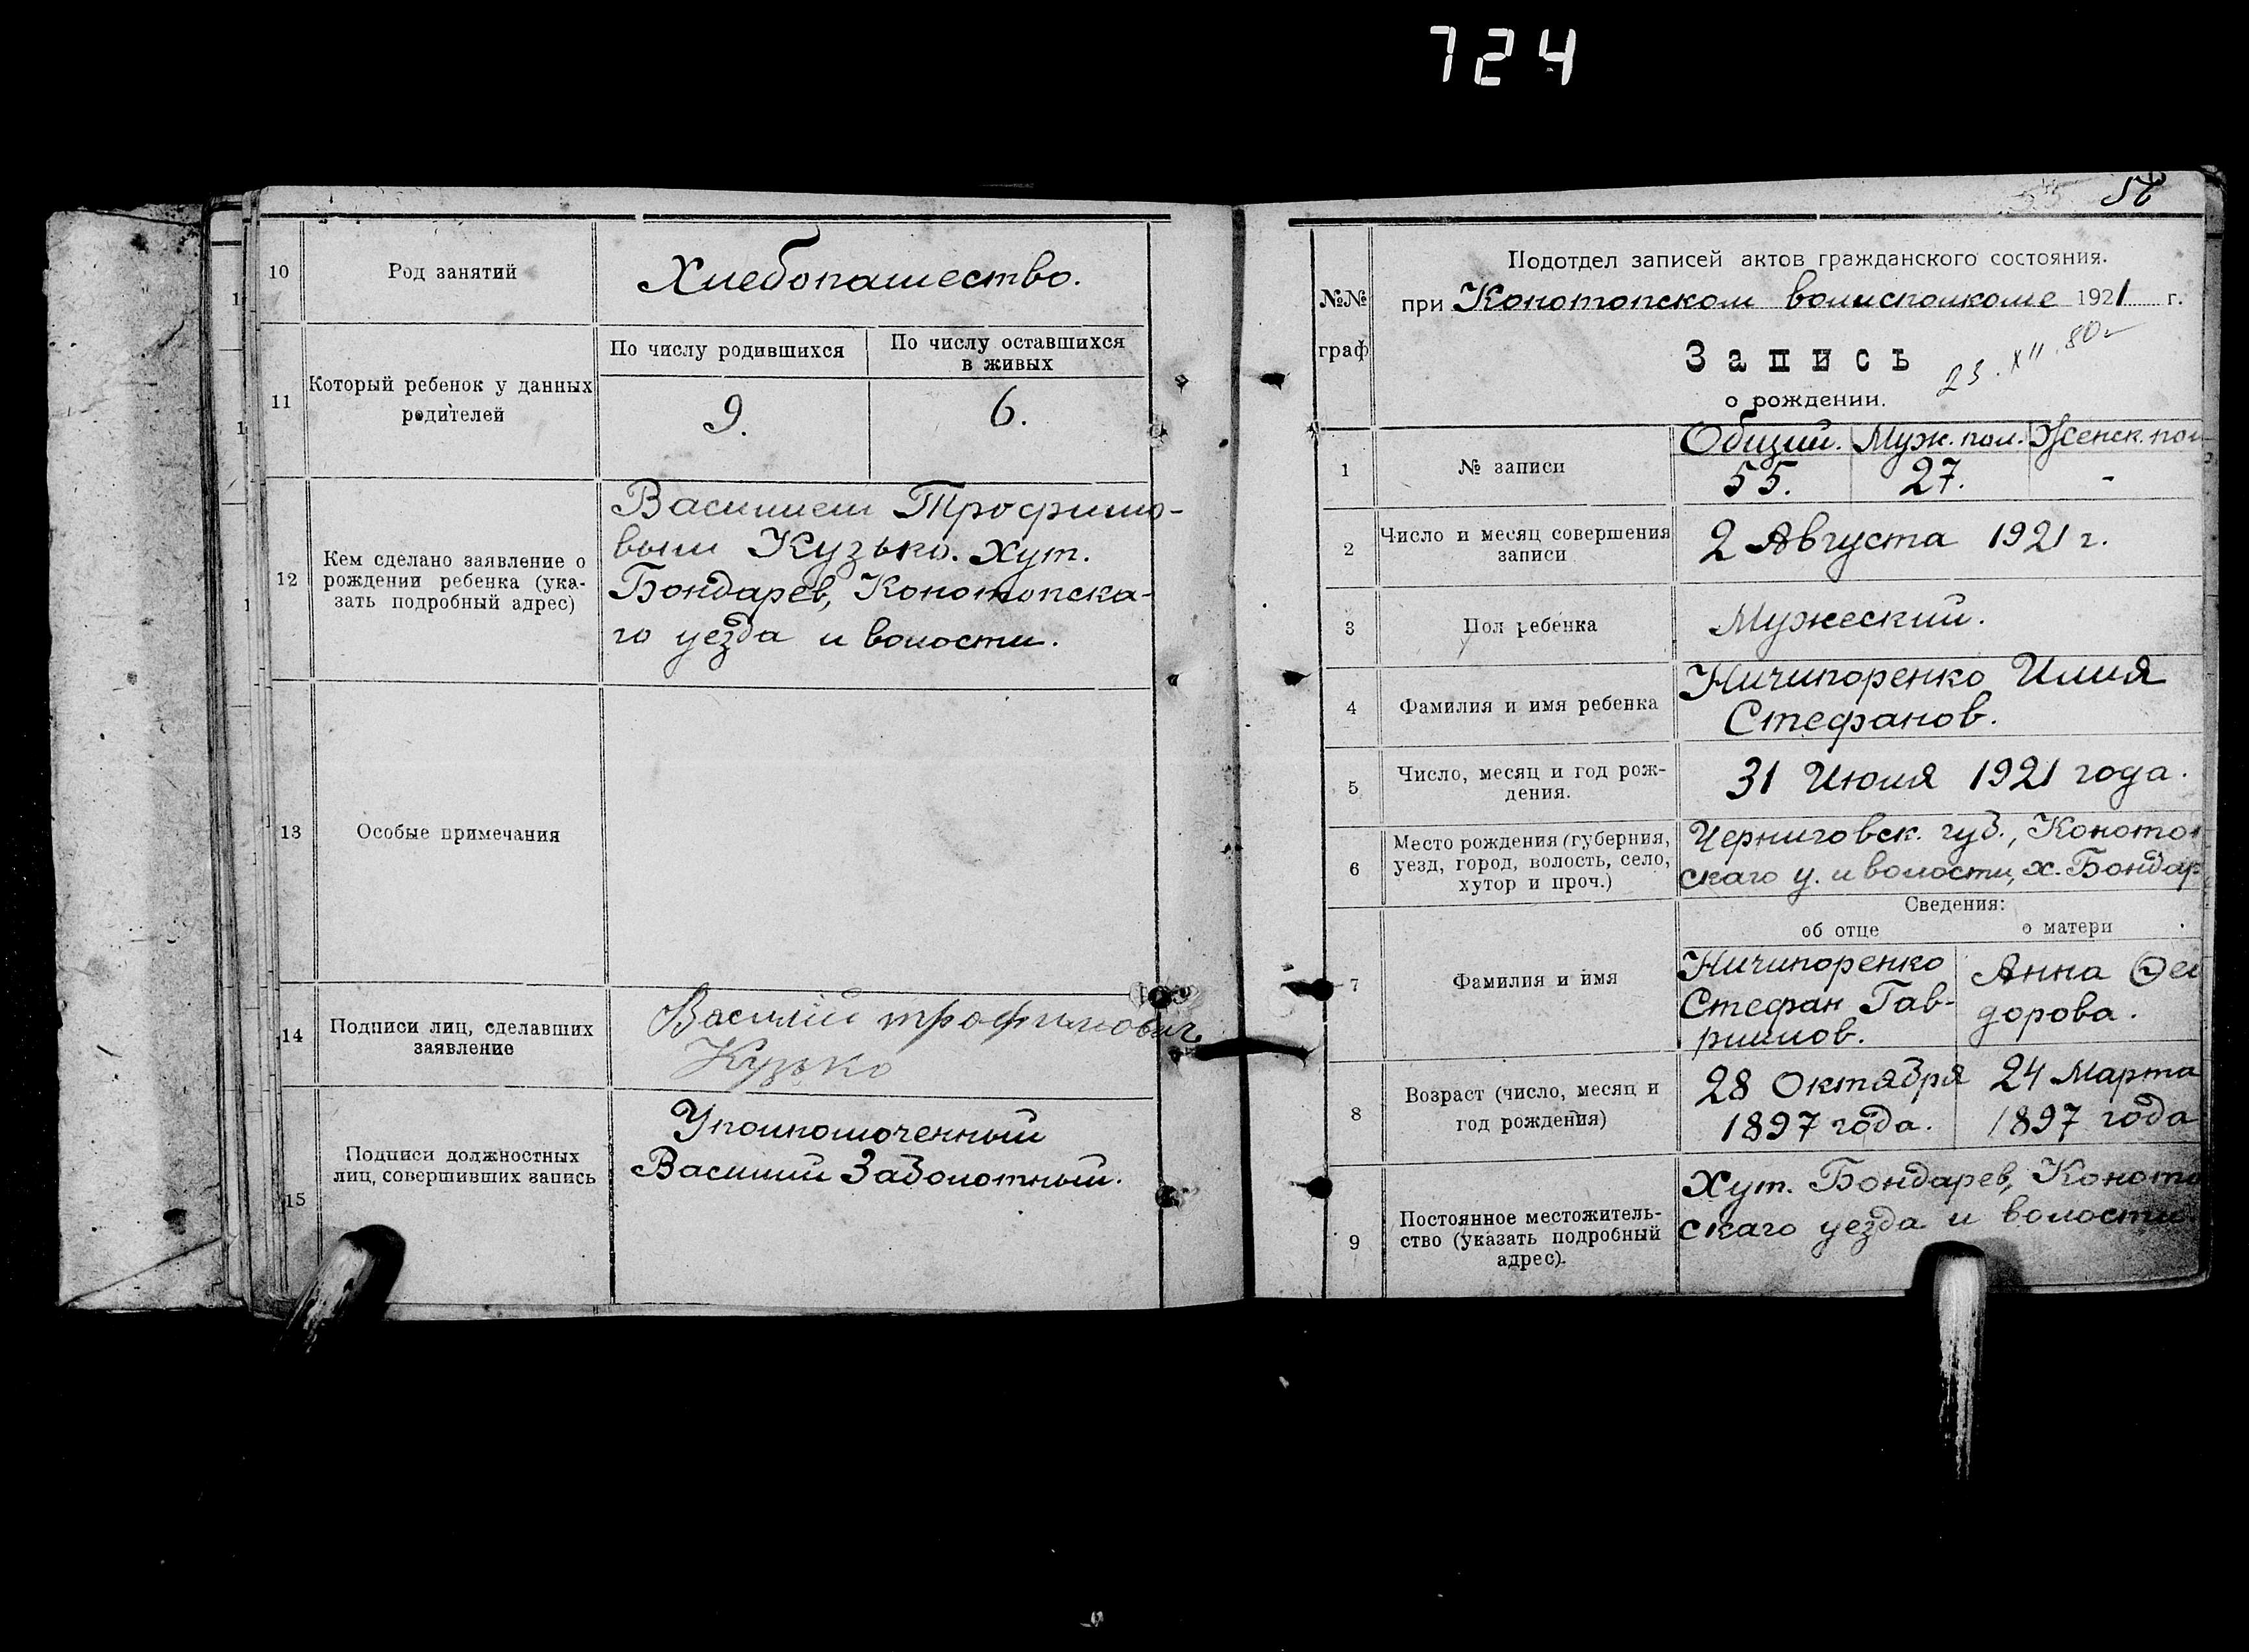 724
10
Род занятий
Хлебопашество.
11
Который ребенок у данных
родителей
По числу родившихся
По числу оставшихся
в живых
9.
6.
12
Кем сделано заявление о
рождении ребенка (ука-
зать подробный адрес)
Василием Трофимо-
вым Кузько. Хут.
Бондарев, Конотопска-
го уезда и волости.
13
Особые примечания
14
Подписи лиц, сделавших
заявление
Василій трофимович
Кузько
15
Подписи должностных
лиц, совершивших запись
Уполномоченный
Василий Заболотный.
№№
граф
Подотдел записей актов гражданского состояния.
при Конотопском волисполкоме 1921 г.
Запись
23.XII.80
о рождении.
1
№ записи
Общий. Муж. пол. Женск. пол
55. 27. -
2
Число и месяц совершения
записи
2 Августа 1921 г.
3
Пол ребенка
Мужеский.
4
Фамилия и имя ребенка
Ничипоренко Илия
Стефанов.
5
Число, месяц и год рож-
дения.
31 Июля 1921 года.
6
Место рождения (губерния,
уезд, город, волость, село,
хутор и проч.)
Черниговск. губ., Коното
скаго у. и волости, х. Бондар
Сведения:
об отце
о матери
7
Фамилия и имя
Ничипоренко
Стефан Гав-
риилов.
Анна Ѳео
дорова.
8
Возраст (число, месяц и
год рождения)
28 Октября
1897 года.
24 Марта
1897 года
9
Постоянное местожитель-
ство (указать подробный
адрес).
Хут. Бондарев, Коното
скаго уезда и волости